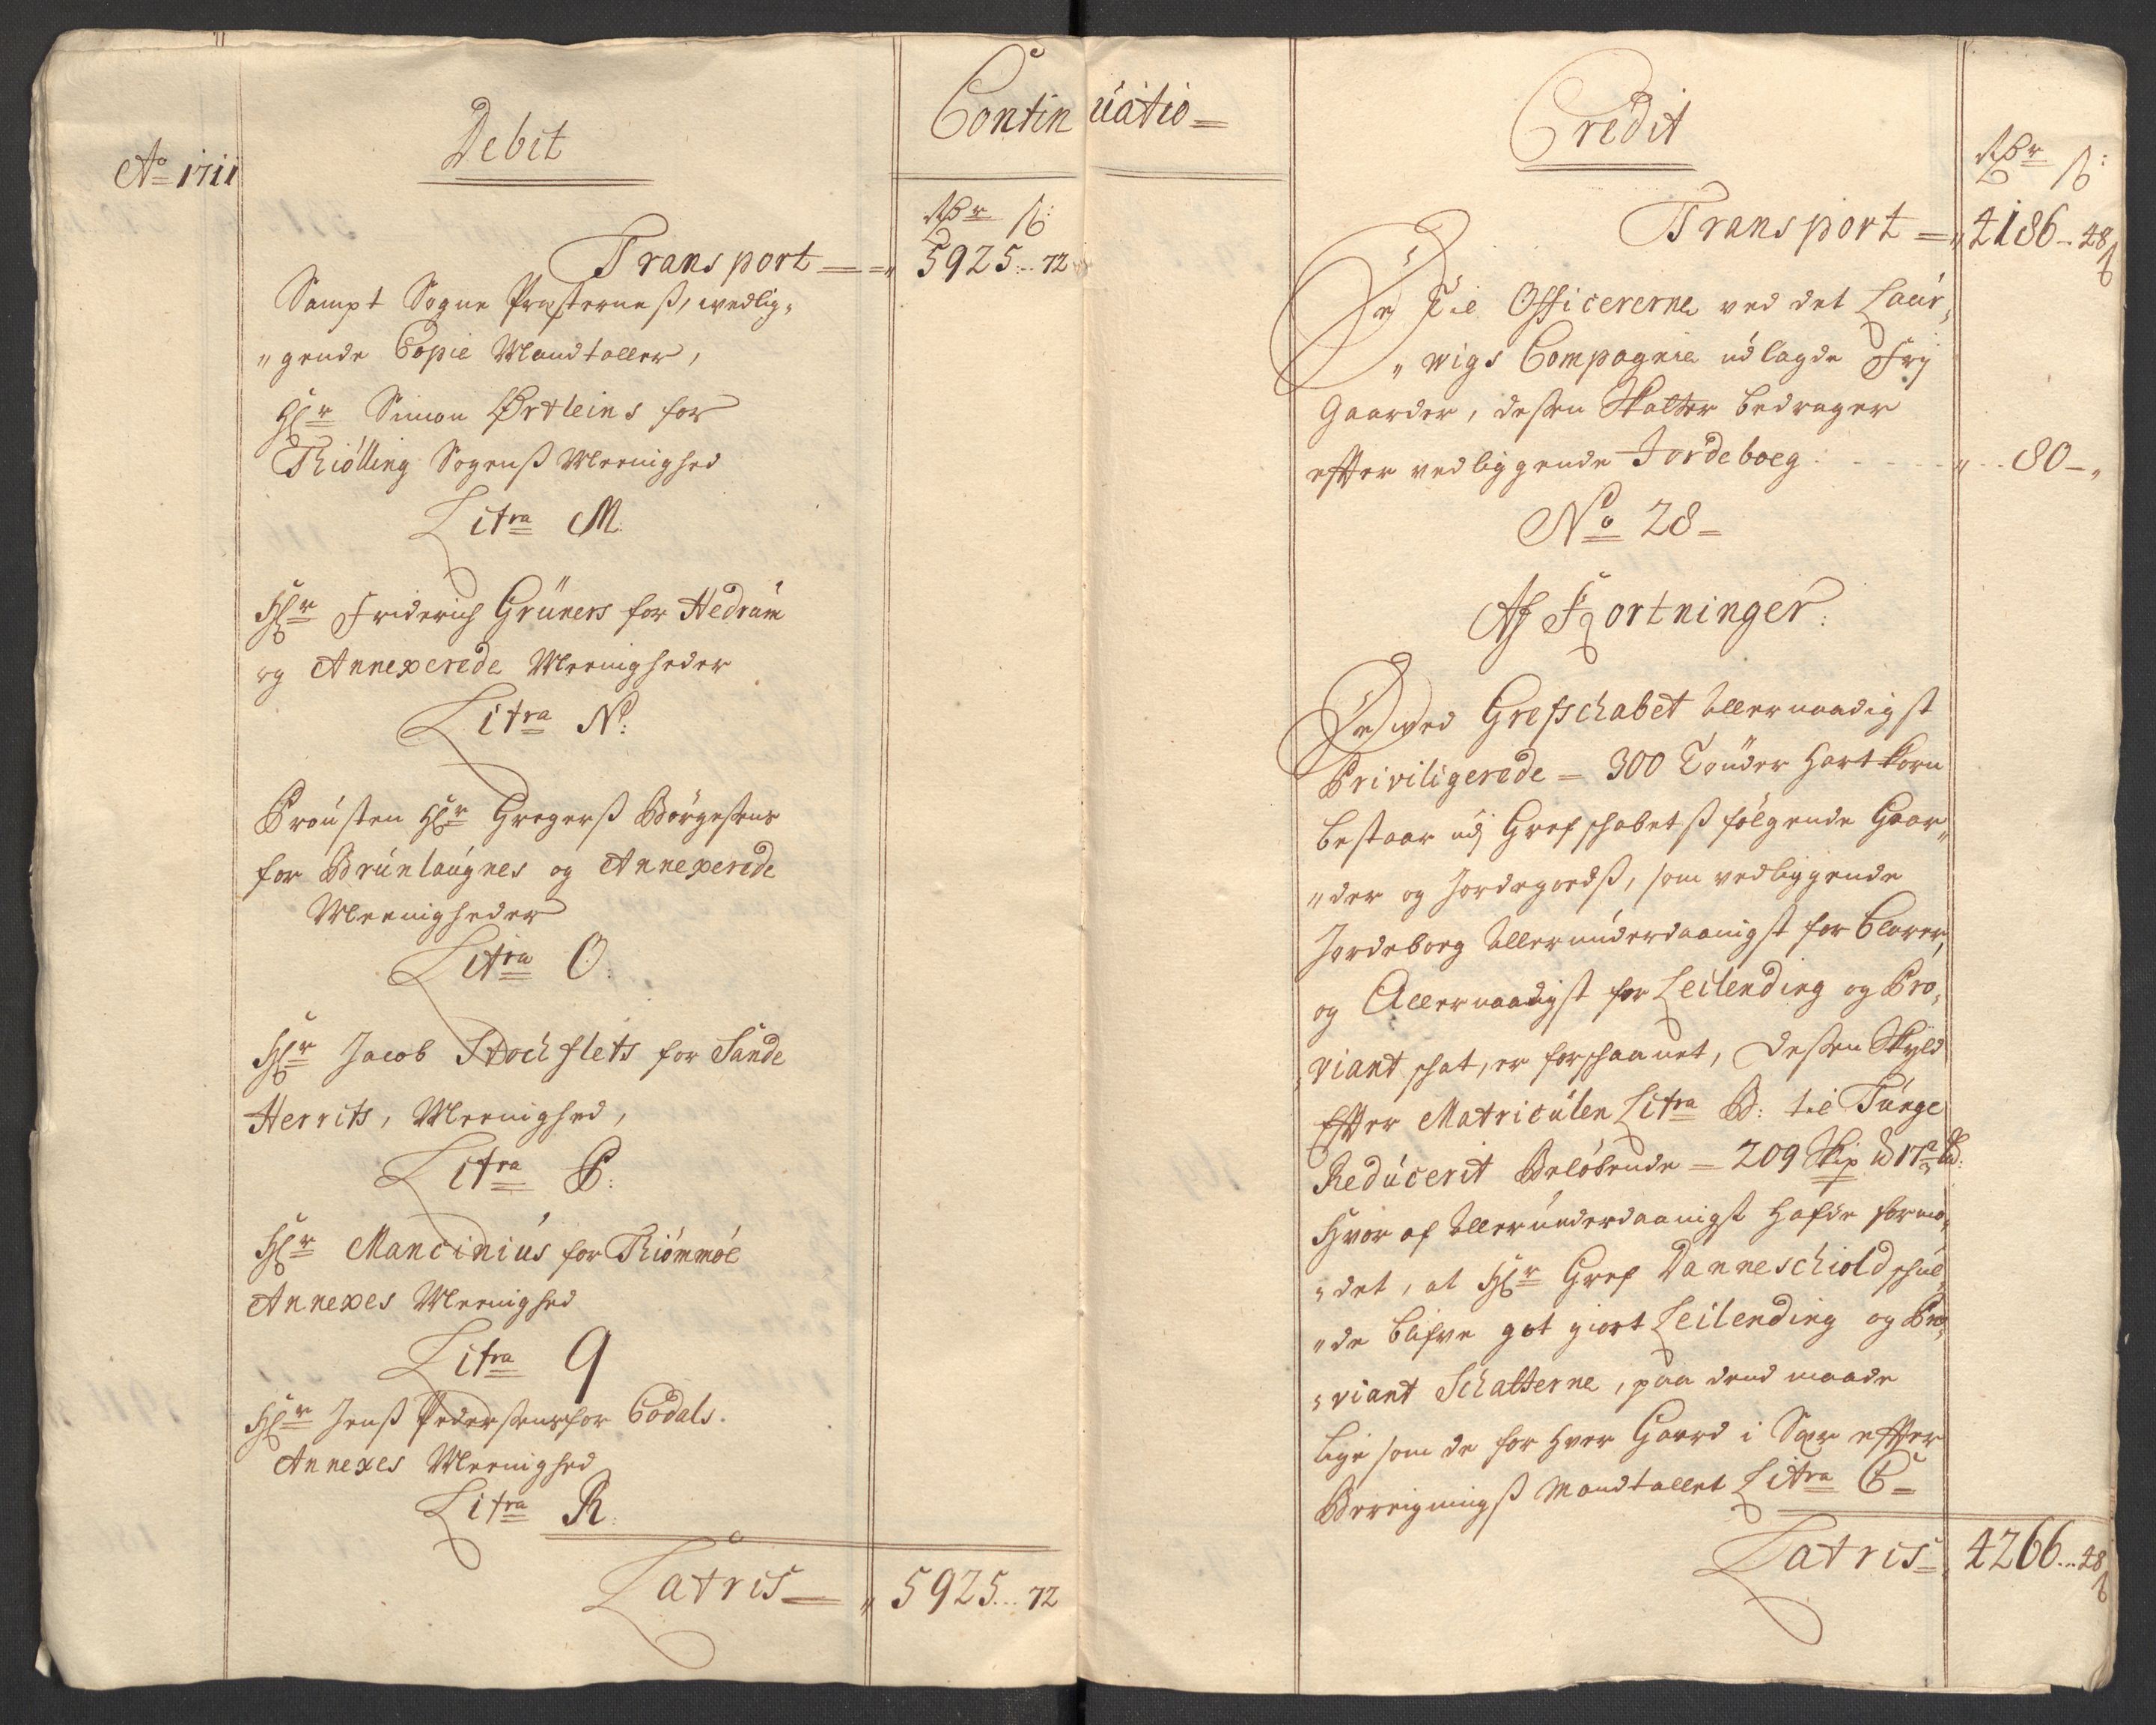 Ao 1711
Debit
Continuatio =
Rdr ß:
Transport == 5925 .. 72
Sampt Sogne Præsterneß, wedlig-
"gende Copie Mandtaller,
Hr Simon Ørtleins for
Thiølling Sogenß Meenighed
Litra M.
Hr Friderich Grüners for Hedrum
og Annexerede Meenigheder
Litra N:
Proústen Hr Gregerß Børgesens
for Brúnlaúgnes og Annexerede
Meenigheder
Litra O:
Hr Jacob Stochflets for Sande
Herrits, Meenighed,
Litra P:
Hr Mancinius for Thiømmøe
Annexes Meenighed
Litra Q
Hr Jenß Pedersens for Codals.
Annexes Meenighed
Litra R.
Latris = " 5925 ... 72
Credit
Rdr ß:
Transport = " 4186 .. 48
De Til Officererne ved det Laur-
"wigs Compagnie udlagde Frj
Gaarder, dessen Skatter bedrager
efter vedliggende Jordeboeg . . . " .. 80 - "
No 28 =
Af Kortninger.
De wed Grefschabet Allernaadigst
Priviligerede = 300 Tønder Hartkorn
bestaar udj Grefschabetß følgende Gaar-
"der og Jordegodß, som vedliggende
Jordeboeg Allerúnderdaanigst for Clarer,
og Allernaadigst for Leilending og Pro-
viant schat, er forschaanet, dessen Skyld
Efter Matriculen Litra B: til Tunge
Redúcerit Beløbende = 209 Skip ℔ 17 ½ Ld:
Hvor af Allerúnderdaanigst hafde formo-
"det, at Hr Gref Danneschiold schul-
"de blifve got giort Leilending og Pro-
"viant Schatterne, paa dend maade
lige som de for Hver Gaard i Sær efter
Bereigningß Mandtallet Litra C =
Latris = 4266 ... 48